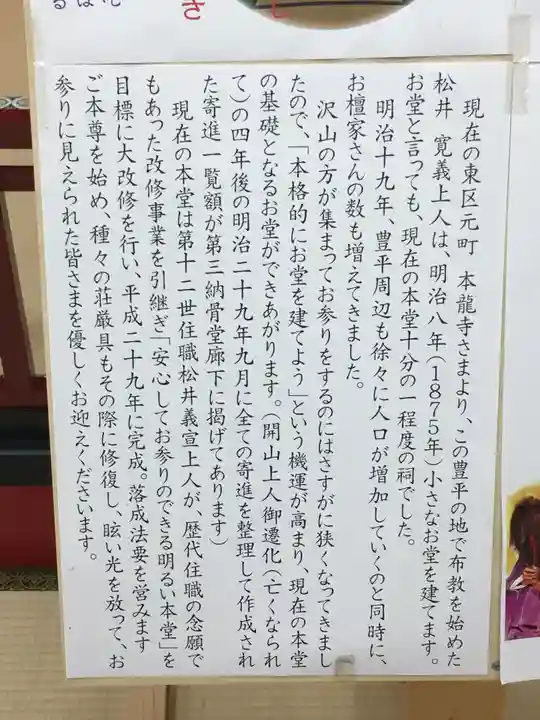 るはん
さ
し
現在の東区元町　本龍寺さまより、この豊平の地で布教を始めた
松井　寛義上人は、明治八年(1875年)小さなお堂を建てます。
お堂と言っても、現在の本堂十分の一程度の祠でした。
明治十九年、豊平周辺も徐々に人口が増加していくのと同時に、
お檀家さんの数も増えてきました。
沢山の方が集まってお参りをするのにはさすがに狭くなってきまし
たので、「本格的にお堂を建てよう」という機運が高まり、現在の本堂
の基礎となるお堂ができあがります。(開山上人御遷化(亡くなられ
て)の四年後の明治二十九年九月に全ての寄進を整理して作成され
た寄進一覧額が第三納骨堂廊下に掲げてあります)
現在の本堂は第十二世住職松井義宣上人が、歴代住職の念願で
もあった改修事業を引継ぎ「安心してお参りのできる明るい本堂」を
目標に大改修を行い、平成二十九年に完成。落成法要を営みます
ご本尊を始め、種々の荘厳具もその際に修復し、眩い光を放って、お
参りに見えられた皆さまを優しくお迎えくださいます。